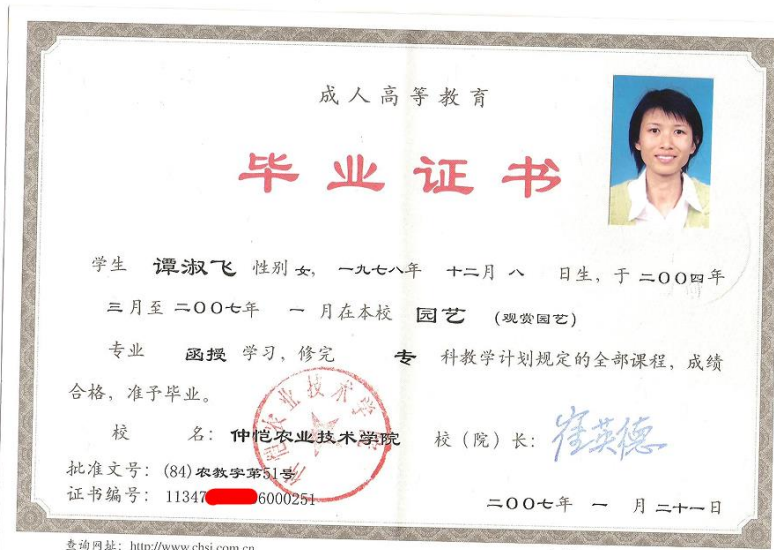 成人高等教育
毕业证书
学生 谭淑飞 性别 女, 一九七八年 十二月 八 日生, 于 二00四年
三月至 二00七年 一 月在本校 园艺 (观赏园艺)
专业 函授 学习, 修完 专 科教学计划规定的全部课程, 成绩
合格, 准予毕业。
校 名: 仲恺农业技术学院 校(院)长: 崔英德
批准文号: (84)农教字第51号
证书编号: 11347 6000251
二00七年 一 月 二十一日
查询网址: http://www.chsi.com.cn
仲恺农业技术学院